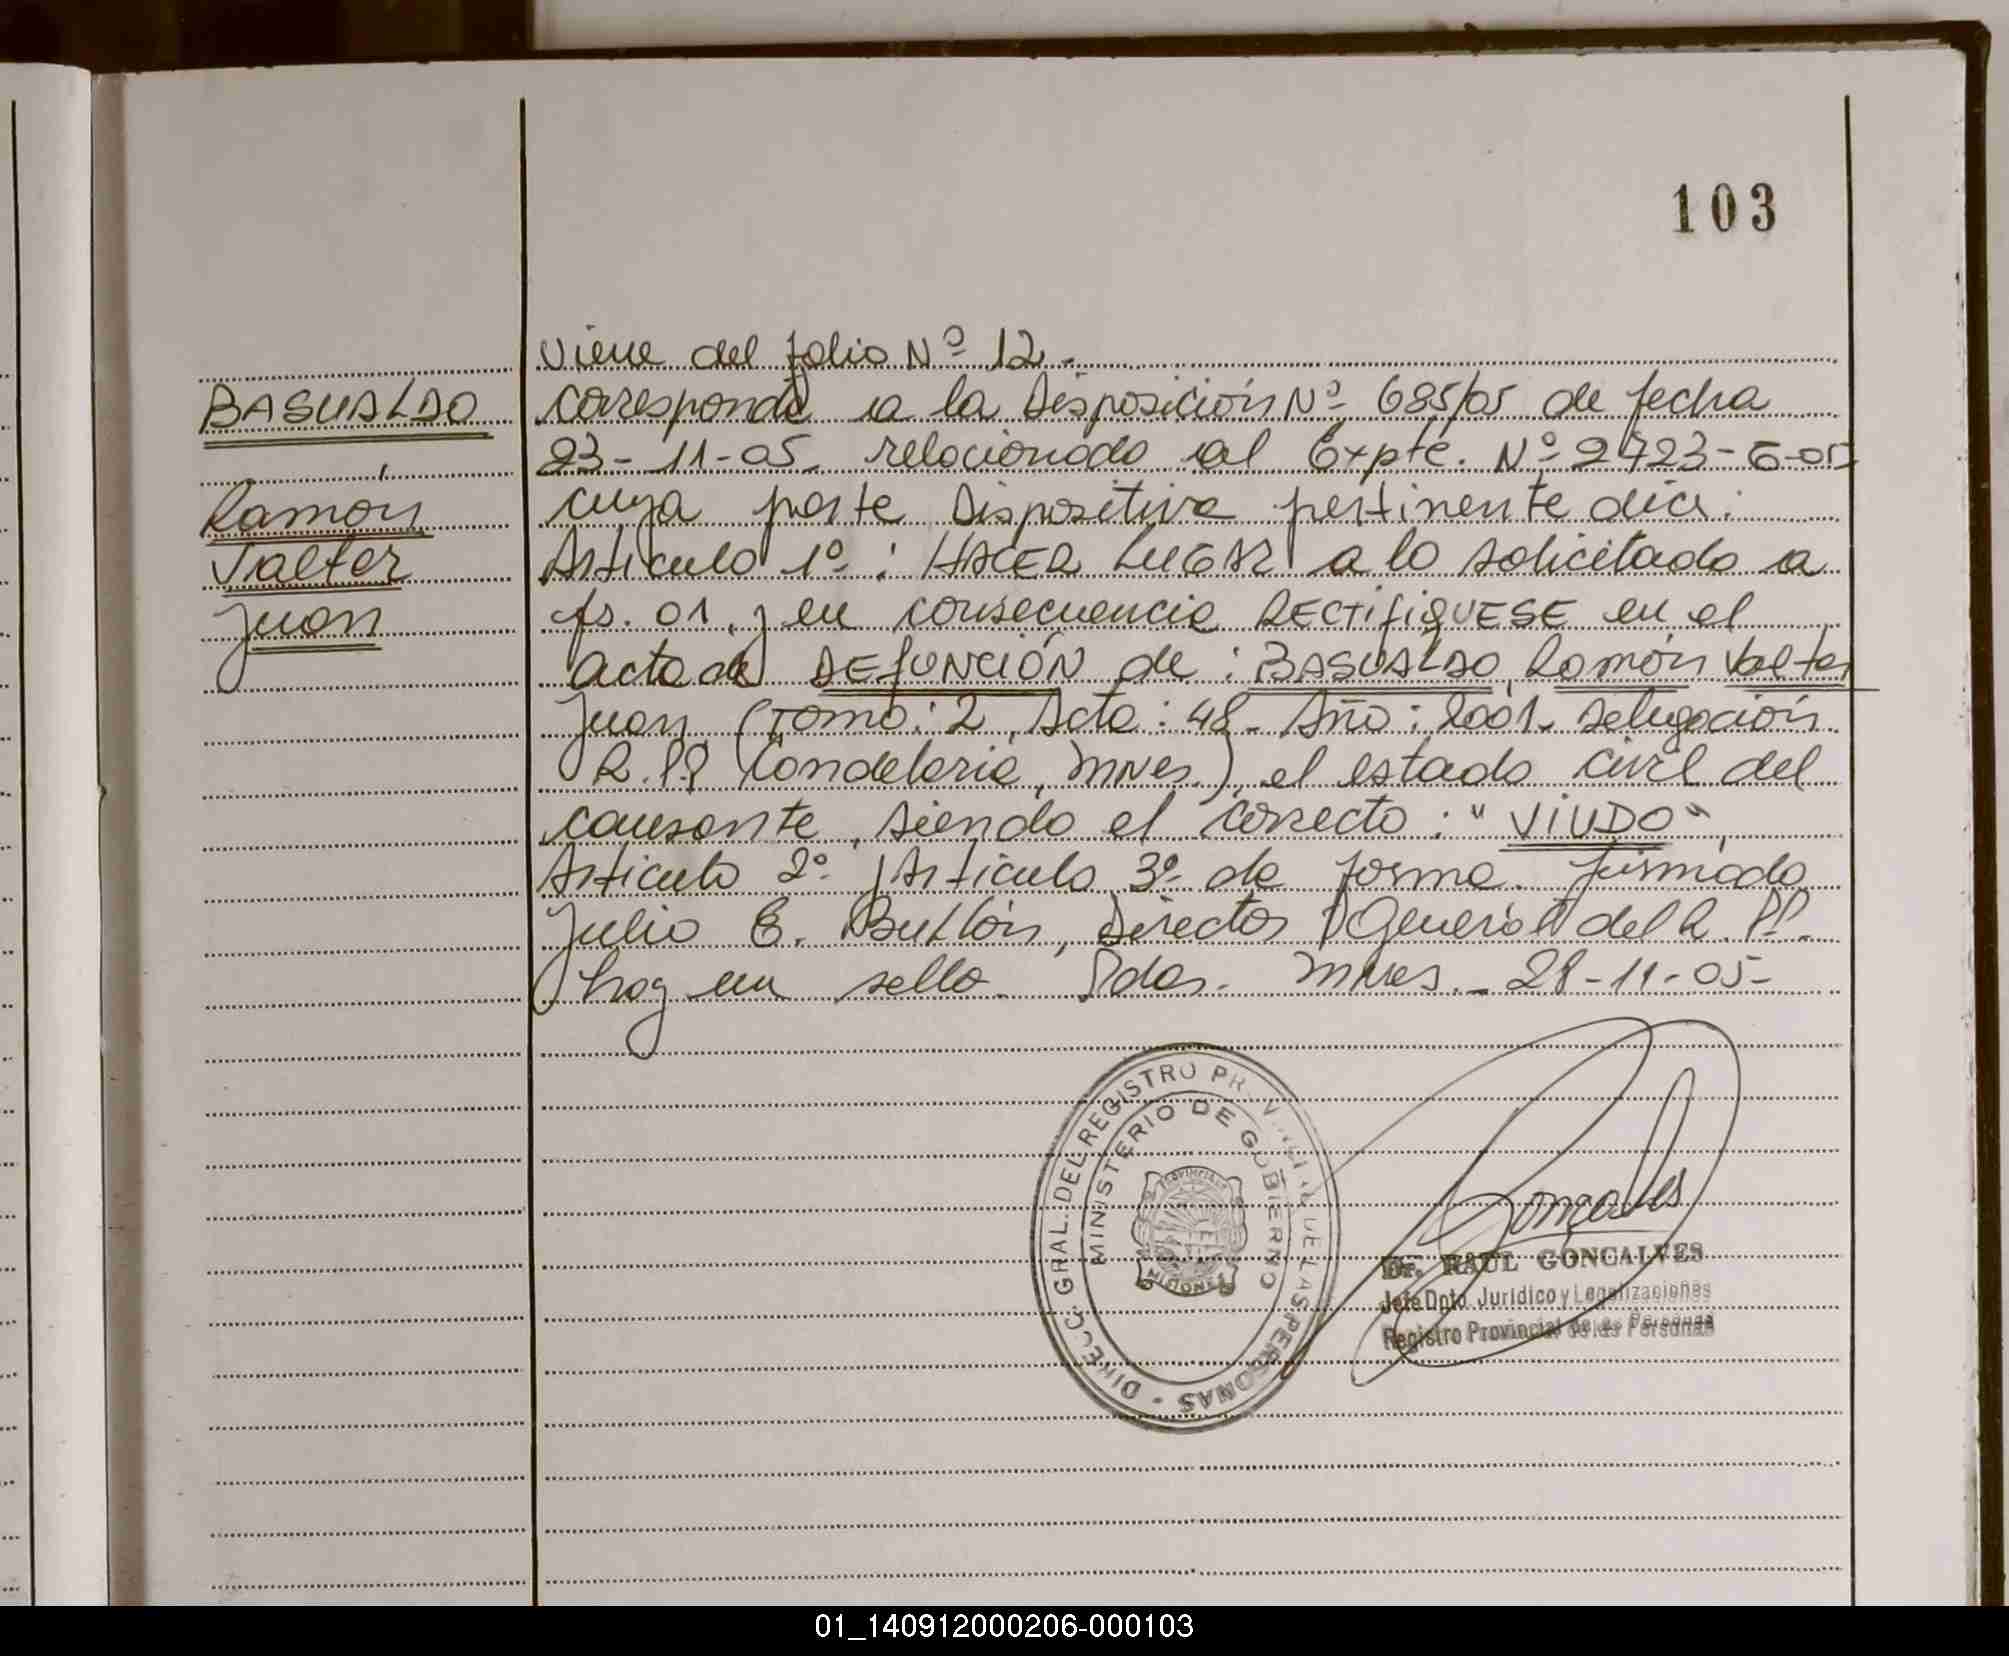 103
Viene del folio Nº 12.-
BASUALDO
Ramón
Valter
Juan
corresponde a la Disposición Nº 685/05 de fecha
23-11-05. relacionado al Expte. Nº 2723-G-05
cuya parte Dispositiva pertinente dice:
Artículo 1º: HACER LUGAR a lo solicitado a
fs. 01. y en consecuencia RECTIFIQUESE en el
acta de DEFUNCIÓN de: BASUALDO, Ramón Valter
Juan (Tomo: 2, Acta: 48- Año: 2001- Delegación
R.P.P. Candelaria, Mnes.), el estado civil del
causante, siendo el correcto: "VIUDO",
Artículo 2º y Artículo 3º de forma. Firmado
Julio E. Director General del R.P.P.
hay un sello. Pdas. Mnes.- 28-11-05-
DIRECC. GRAL. DEL REGISTRO PROVINCIAL DE LAS PERSONAS -
MINISTERIO DE GOBIERNO
PROVINCIA
MISIONES
Goncalves
Dr. RAUL GONCALVES
Jefe Dpto. Jurídico y Legalizaciones
Registro Provincial de las Personas
01_140912000206-000103